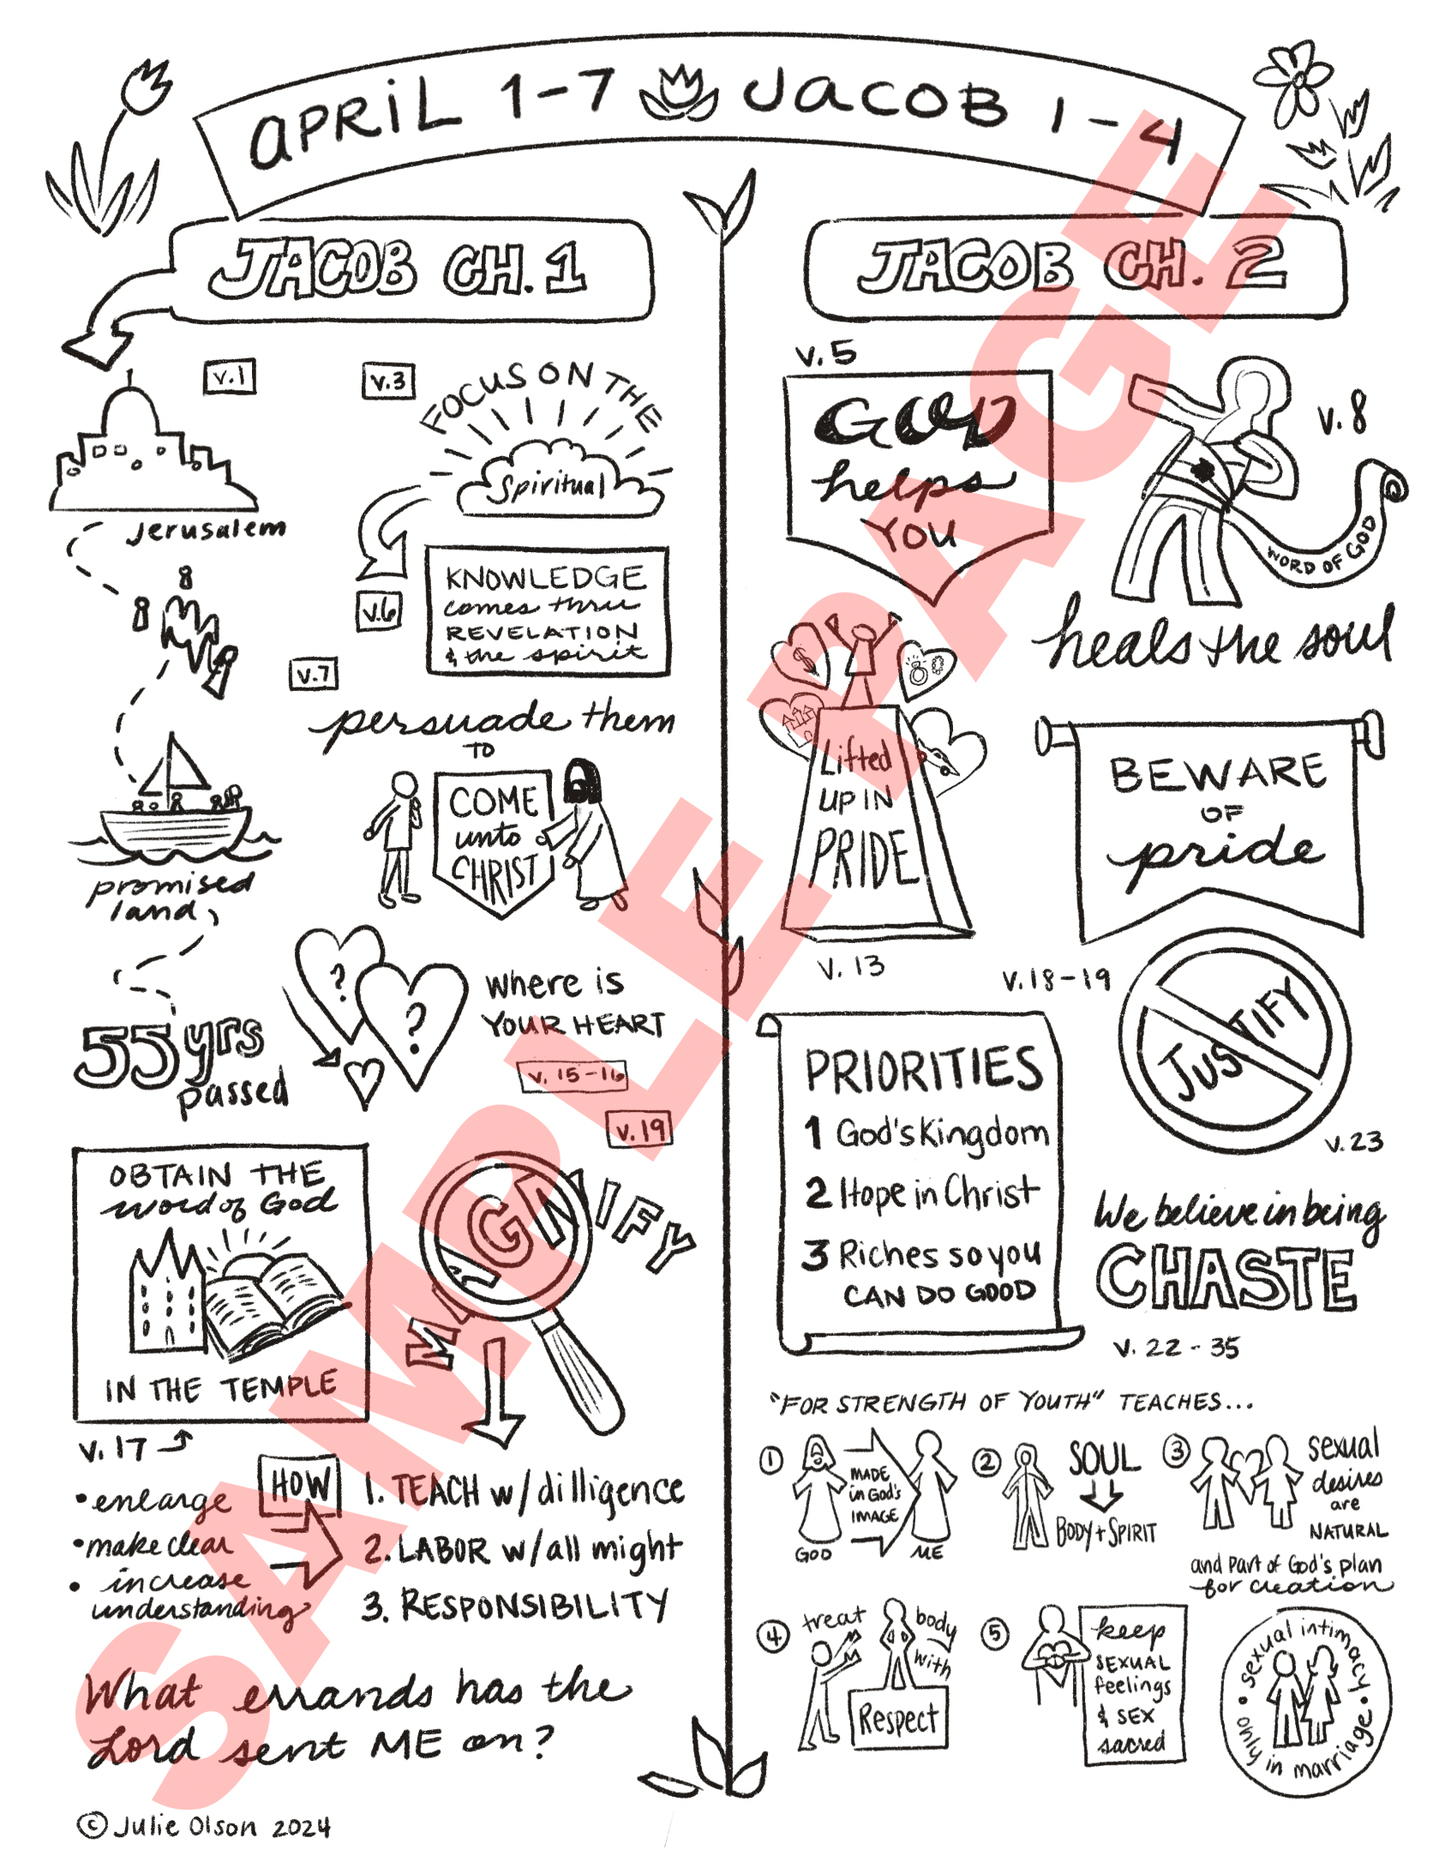 APRIL 1-7 JACOB 1-4
JACOB CH. 1
v.1
Jerusalem
promised
land
55 yrs
passed
v.3
FOCUS ON THE
Spiritual
v.6
KNOWLEDGE
comes thru
REVELATION
& the spirit
v.7
persuade them
TO
COME
unto
CHRIST
? ?
where is
YOUR HEART
v. 15-16
OBTAIN THE
word of God
IN THE TEMPLE
v. 17
v. 19
MAGNIFY
• enlarge
• make clear
• increase
understanding
HOW
1. TEACH w/ dilligence
2. LABOR w/ all might
3. RESPONSIBILITY
What errands has the
Lord sent ME on?
© Julie Olson 2024
JACOB CH. 2
v. 5
GOD
helps
YOU
v. 8
WORD OF GOD
heals the soul
$
Lifted
UP IN
PRIDE
v. 13
BEWARE
OF
pride
v. 18-19
PRIORITIES
1 God's Kingdom
2 Hope in Christ
3 Riches so you
CAN DO GOOD
JUSTIFY
v. 23
We believe in being
CHASTE
v. 22-35
"FOR STRENGTH OF YOUTH" TEACHES...
1
MADE
in God's
IMAGE
GOD
ME
2
SOUL
BODY + SPIRIT
3
sexual
desires
are
NATURAL
and part of God's plan
for creation
4
treat
body
with
Respect
5
keep
SEXUAL
feelings
& SEX
sacred
• sexual intimacy •
only in marriage
SAMPLE PAGE